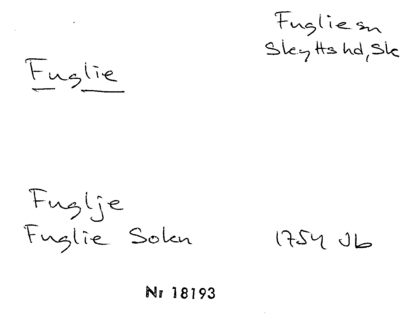 Fuglie sn
Skytts hd, Sk
Fuglie
Fuglje
Fuglie Sokn 1754 Jb
Nr 18193